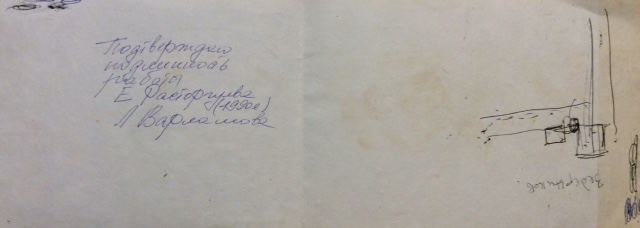 Подтверждаю
подлинность
работы
Е Расторгуева
(1990е)
Л Варламова